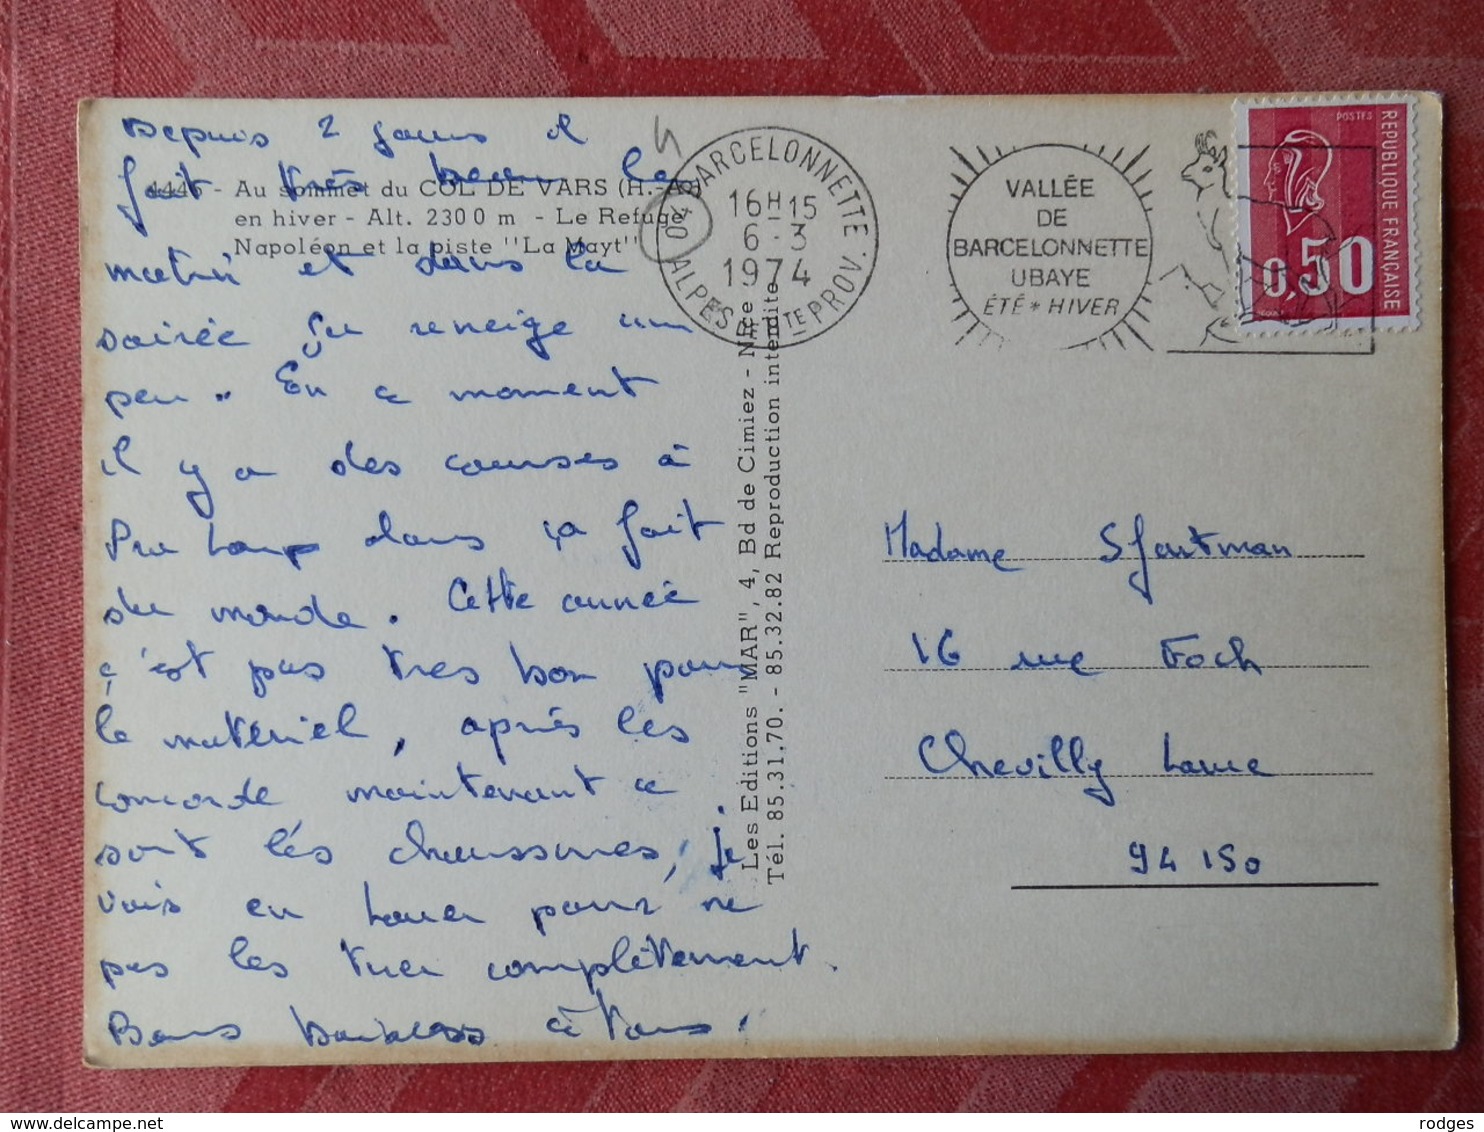 Depuis 2 jours il
fait très beau le
matin et dans la
soirée su reneige un
peu. En ce moment
il y a des courses à
Pra Loup donc ça fait
du monde. Cette année
c'est pas très bon pour
le matériel, après les
concorde maintenant ce
sont lés chaussures, je
vais en louer pour ne
pas les tuer complètement.
Bons baisers à tous.
4446 - Au sommet du COL DE VARS (H.-A.)
en hiver - Alt. 2300 m - Le Refuge
Napoléon et la piste "La Mayt"
Les Editions "MAR", 4, Bd de Cimiez - Nice
Tél. 85.31.70. - 85.32.82 Reproduction interdite
04 BARCELONNETTE
16H15
6-3
1974
ALPES DE HTE PROV.
VALLÉE
DE
BARCELONNETTE
UBAYE
ÉTÉ * HIVER
POSTES
REPUBLIQUE FRANÇAISE
0,50
Madame Sfartman
16 rue Foch
Chevilly Larue
94 150
rodges